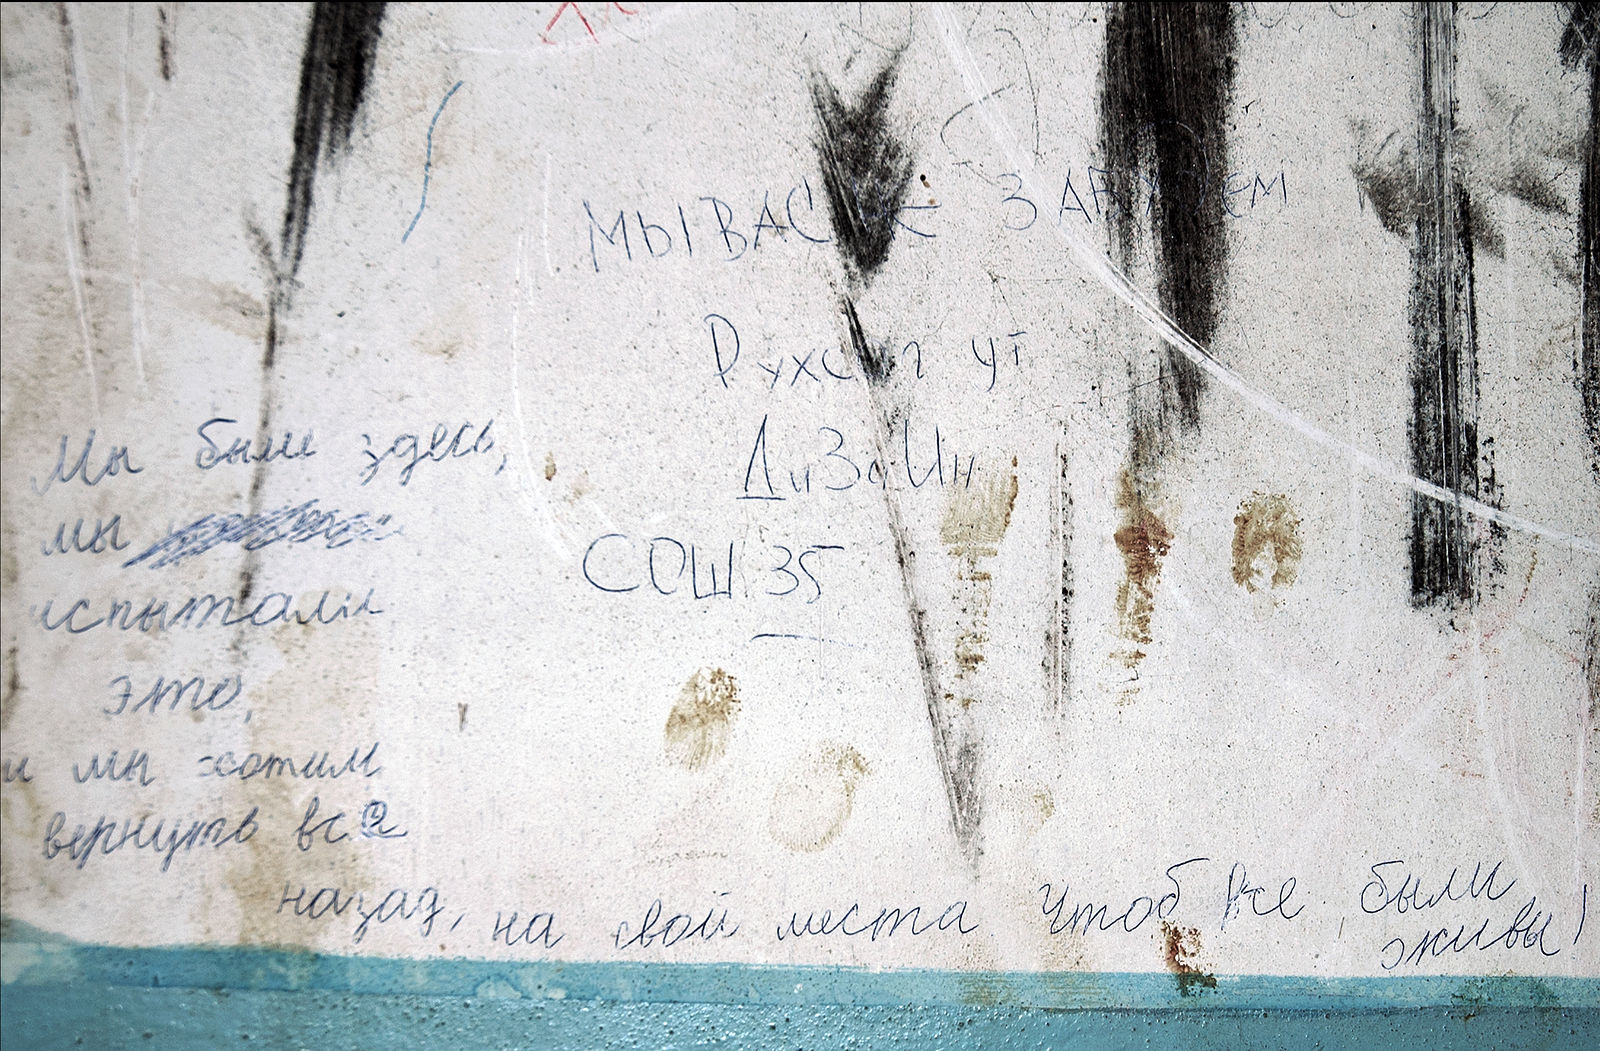 МЫ ВАС НЕ ЗАБУДЕМ
Рухсаг ут
ДиЗаИн
СОШ 35
Мы были здесь,
мы
испытали
это,
и мы хотим
вернуть все
назад, на свои места Чтоб Все были
живы!